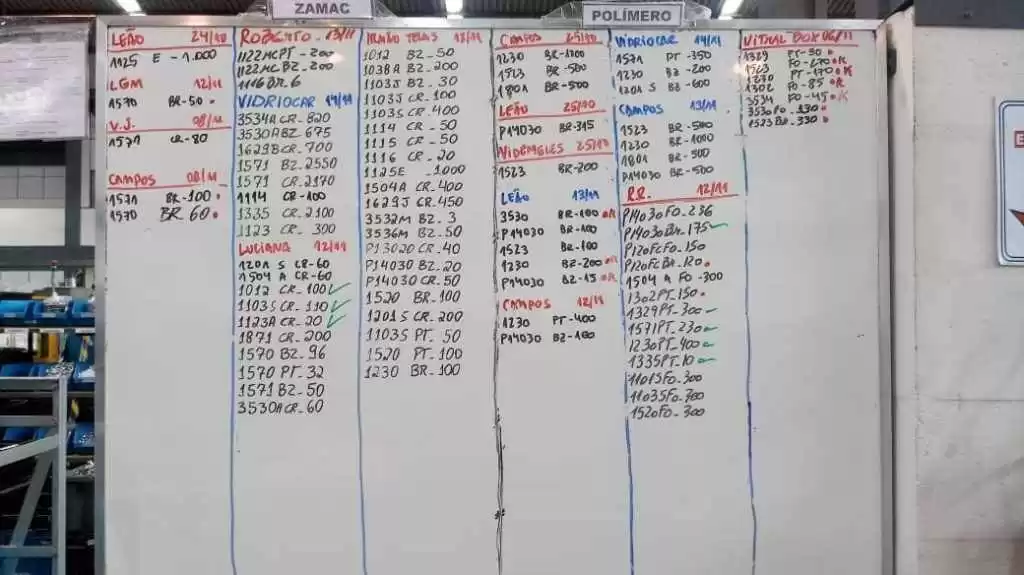 ZAMAC
POLÍMERO
LEÃO 24/10
1125 E - 1.000
LGM 12/11
1570 BR-50
V.J. 08/11
1571 CR-80
CAMPOS 08/11
1571 BR-100
1570 BR 60
ROBERTO 13/11
1122MCPT-200
1122MCBZ-200
1116BR-6
VIDRIOCAR 14/11
3534A CR-820
3530A BZ-675
1629B CR-700
1571 BZ-2550
1571 CR-2170
1114 CR-100
1335 CR-2100
1123 CR-300
LUCIANA 12/11
1201 S CR-60
1504 A CR-60
1012 CR-100
1103S CR-110
1123A CR-20
1871 CR-200
1570 BZ-96
1570 PT-32
1571 BZ-50
3530A CR-60
1012 BZ-50
1038A BZ-200
1103J BZ-30
1103J CR-100
1103S CR-400
1114 CR-50
1115 CR-50
1116 CR-20
1125E -1000
1504A CR-400
1629J CR-450
3532M BZ-3
3536M BZ-50
P13020 CR-40
P14030 BZ-20
P14030 CR-50
1520 BR-100
1201S CR-200
1103S PT-50
1520 PT-100
1230 BR-100
CAMPOS 25/10
1230 BR-1200
1523 BR-500
1801 BR-500
LEÃO 25/10
P14030 BR-315
25/10
1523 BR-200
LEÃO 13/11
3530 BR-100
P14030 BR-100
1523 BR-100
1230 BZ-200
P14030 BZ-15
CAMPOS 12/11
1230 PT-400
P14030 BZ-100
VIDRIOCAR 14/11
1571 PT-350
1230 BZ-200
1201 S BZ-600
CAMPOS 13/11
1523 BR-500
1230 BR-1000
1801 BR-500
P14030 BR-500
R.R. 12/11
P14030FO-286
P14030BR-175
P120FCFO-150
P120FCBR-120
1504 A FO-300
1302PT-150
1329PT-300
1571PT-230
1230PT-400
1335PT-10
1101SFO-300
1103SFO-300
1520FO-300
VITRAL BOX 06/11
1329 PT-50
1523 FO-270
1230 PT-170
1302 FO-85
3534 FO-45
3530 FO-330
1523BR-330